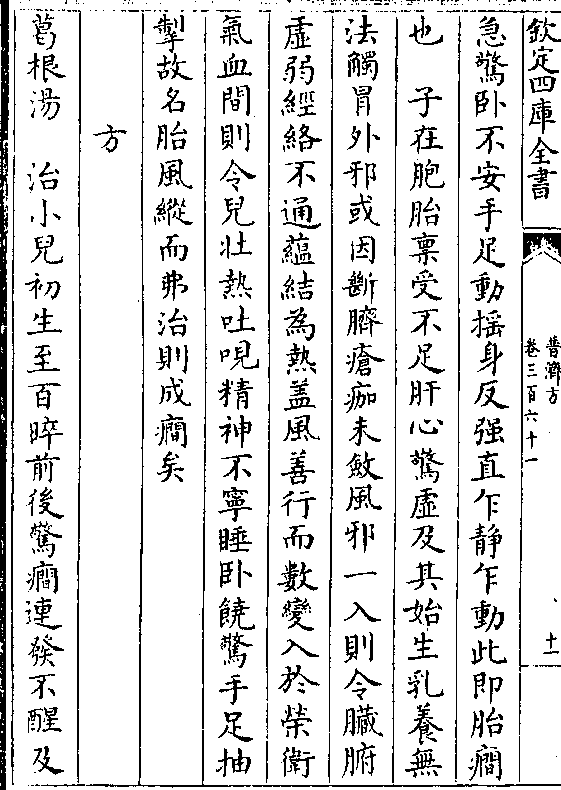 欽定四庫全書
普濟方
卷三百六十一
十一
急驚卧不安手足動摇身反强直乍靜乍動此即胎癇
也　子在胞胎稟受不足肝心驚虚及其始生乳養無
法觸冒外邪或因斷臍瘡痂未斂風邪一入則令臟腑
虚弱經絡不通蘊結為熱盖風善行而數變入於榮衛
氣血間則令兒壯熱吐哯精神不寧睡卧饒驚手足抽
掣故名胎風縱而弗治則成癎矣
方
葛根湯　治小兒初生至百晬前後驚癎連發不醒及